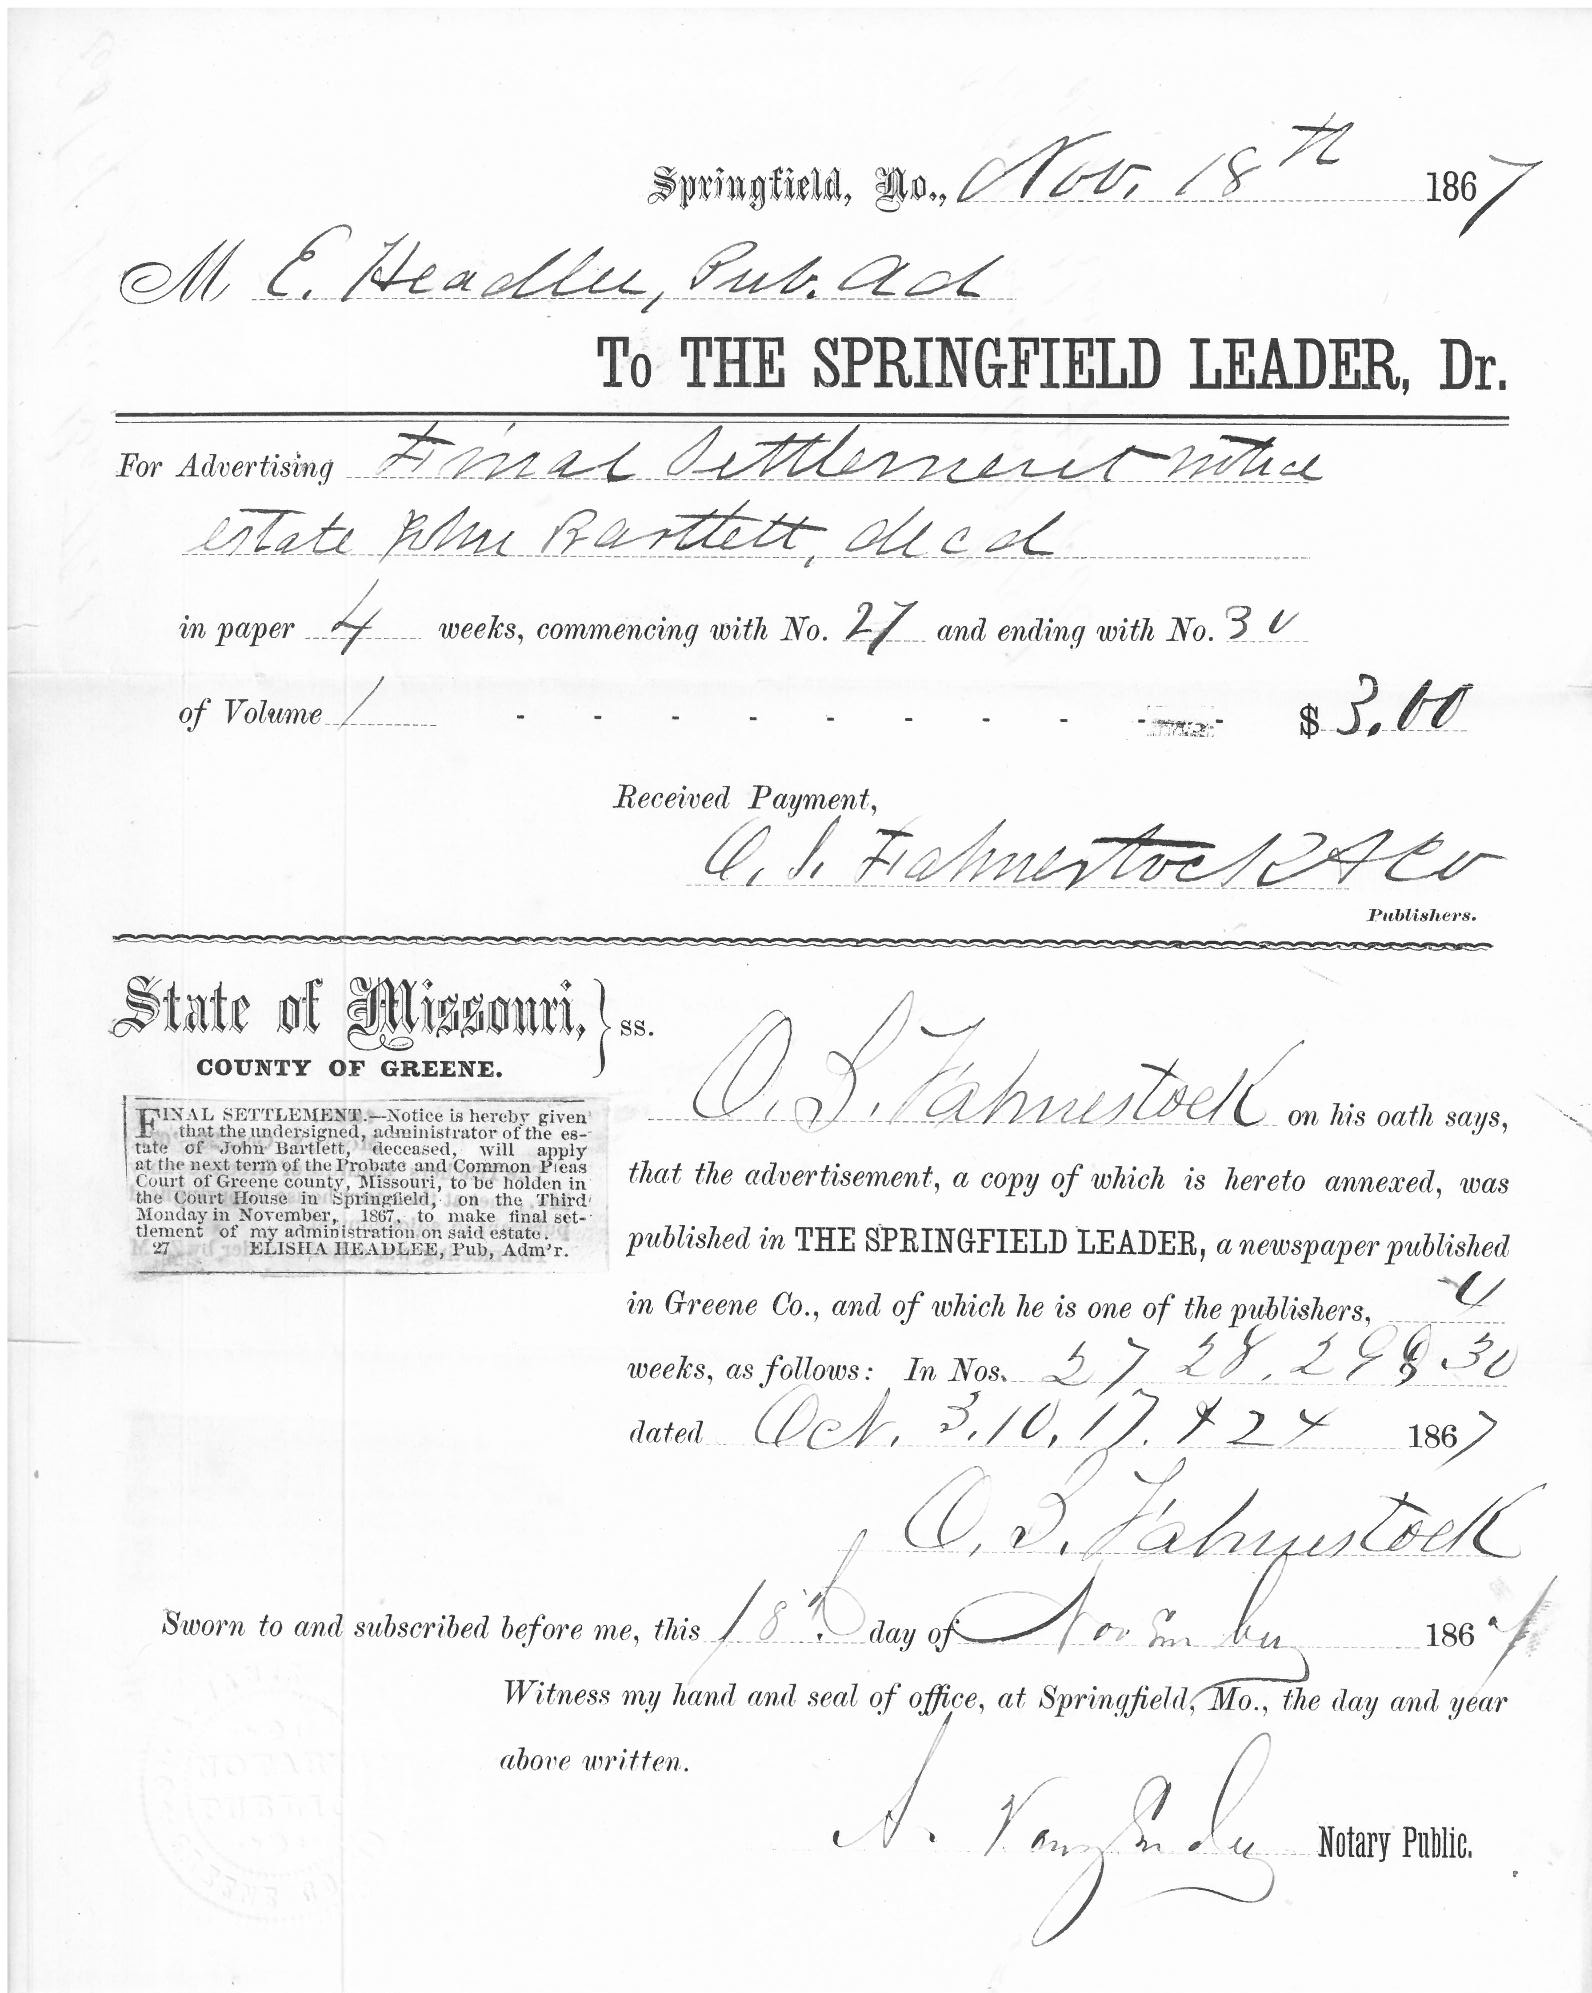 Springfield, Mo., Nov. 18th 1867
M E. Headlee, Pub. Ad
To THE SPRINGFIELD LEADER, Dr.
For Advertising Final Settlement notice
estate John Bartlett, decd
in paper 4 weeks, commencing with No. 27 and ending with No. 30
of Volume 1 - - - - - - - - - - $ 3.00
Received Payment,
O. S. Fahnestock & Co
Publishers.
State of Missouri, } ss.
COUNTY OF GREENE.
FINAL SETTLEMENT.—Notice is hereby given
that the undersigned, administrator of the es-
tate of John Bartlett, deceased, will apply
at the next term of the Probate and Common Pleas
Court of Greene county, Missouri, to be holden in
the Court House in Springfield, on the Third
Monday in November, 1867, to make final set-
tlement of my administration on said estate.
27 ELISHA HEADLEE, Pub, Adm'r.
O. S. Fahnestock on his oath says,
that the advertisement, a copy of which is hereto annexed, was
published in THE SPRINGFIELD LEADER, a newspaper published
in Greene Co., and of which he is one of the publishers, 4
weeks, as follows: In Nos. 27 28, 29 & 30
dated Oct. 3, 10, 17. & 24 1867
O. S. Fahnestock
Sworn to and subscribed before me, this 18th day of November 1867
Witness my hand and seal of office, at Springfield, Mo., the day and year
above written.
A. Notary Public.